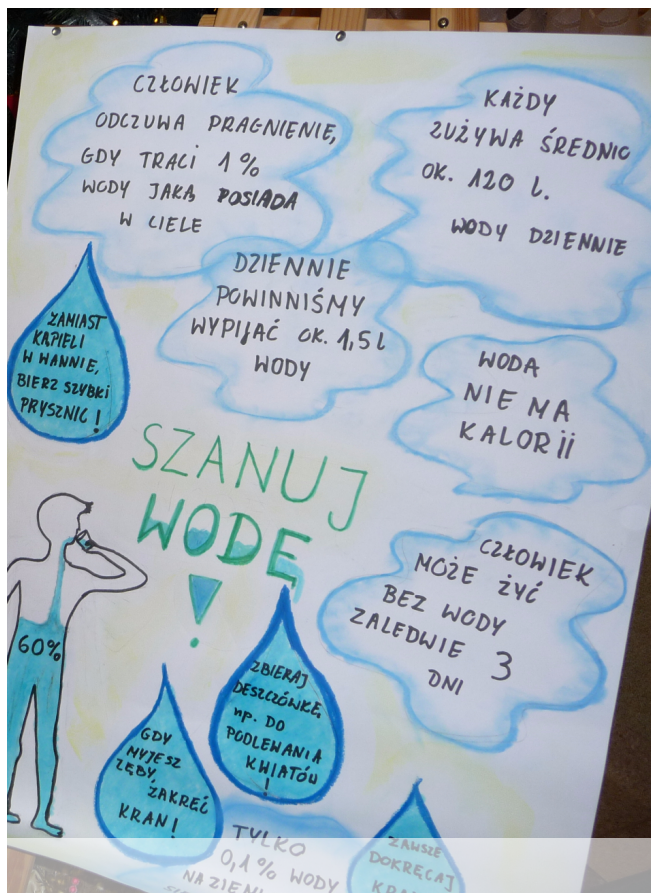 CZŁOWIEK
ODCZUWA PRAGNIENIE,
GDY TRACI 1%
WODY JAKĄ POSIADA
W CIELE
KAŻDY
ZUŻYWA ŚREDNIO
OK. 120 l.
WODY DZIENNIE
DZIENNIE
POWINNIŚMY
WYPIJAĆ OK. 1,5 l
WODY
ZAMIAST
KĄPIELI
W WANNIE,
BIERZ SZYBKI
PRYSZNIC!
WODA
NIE MA
KALORii
SZANUJ
WODĘ
!
CZŁOWIEK
MOŻE ŻYĆ
BEZ WODY
ZALEDWIE 3
DNI
60%
ZBIERAJ
DESZCZÓWKĘ
np. DO
PODLEWANIA
KWIATÓW
!
GDY
MYJESZ
ZĘBY,
ZAKRĘĆ
KRAN!
TYLKO
0,1% WODY
NA ZIEMI
ZAWSZE
DOKRĘCAJ
KRAN